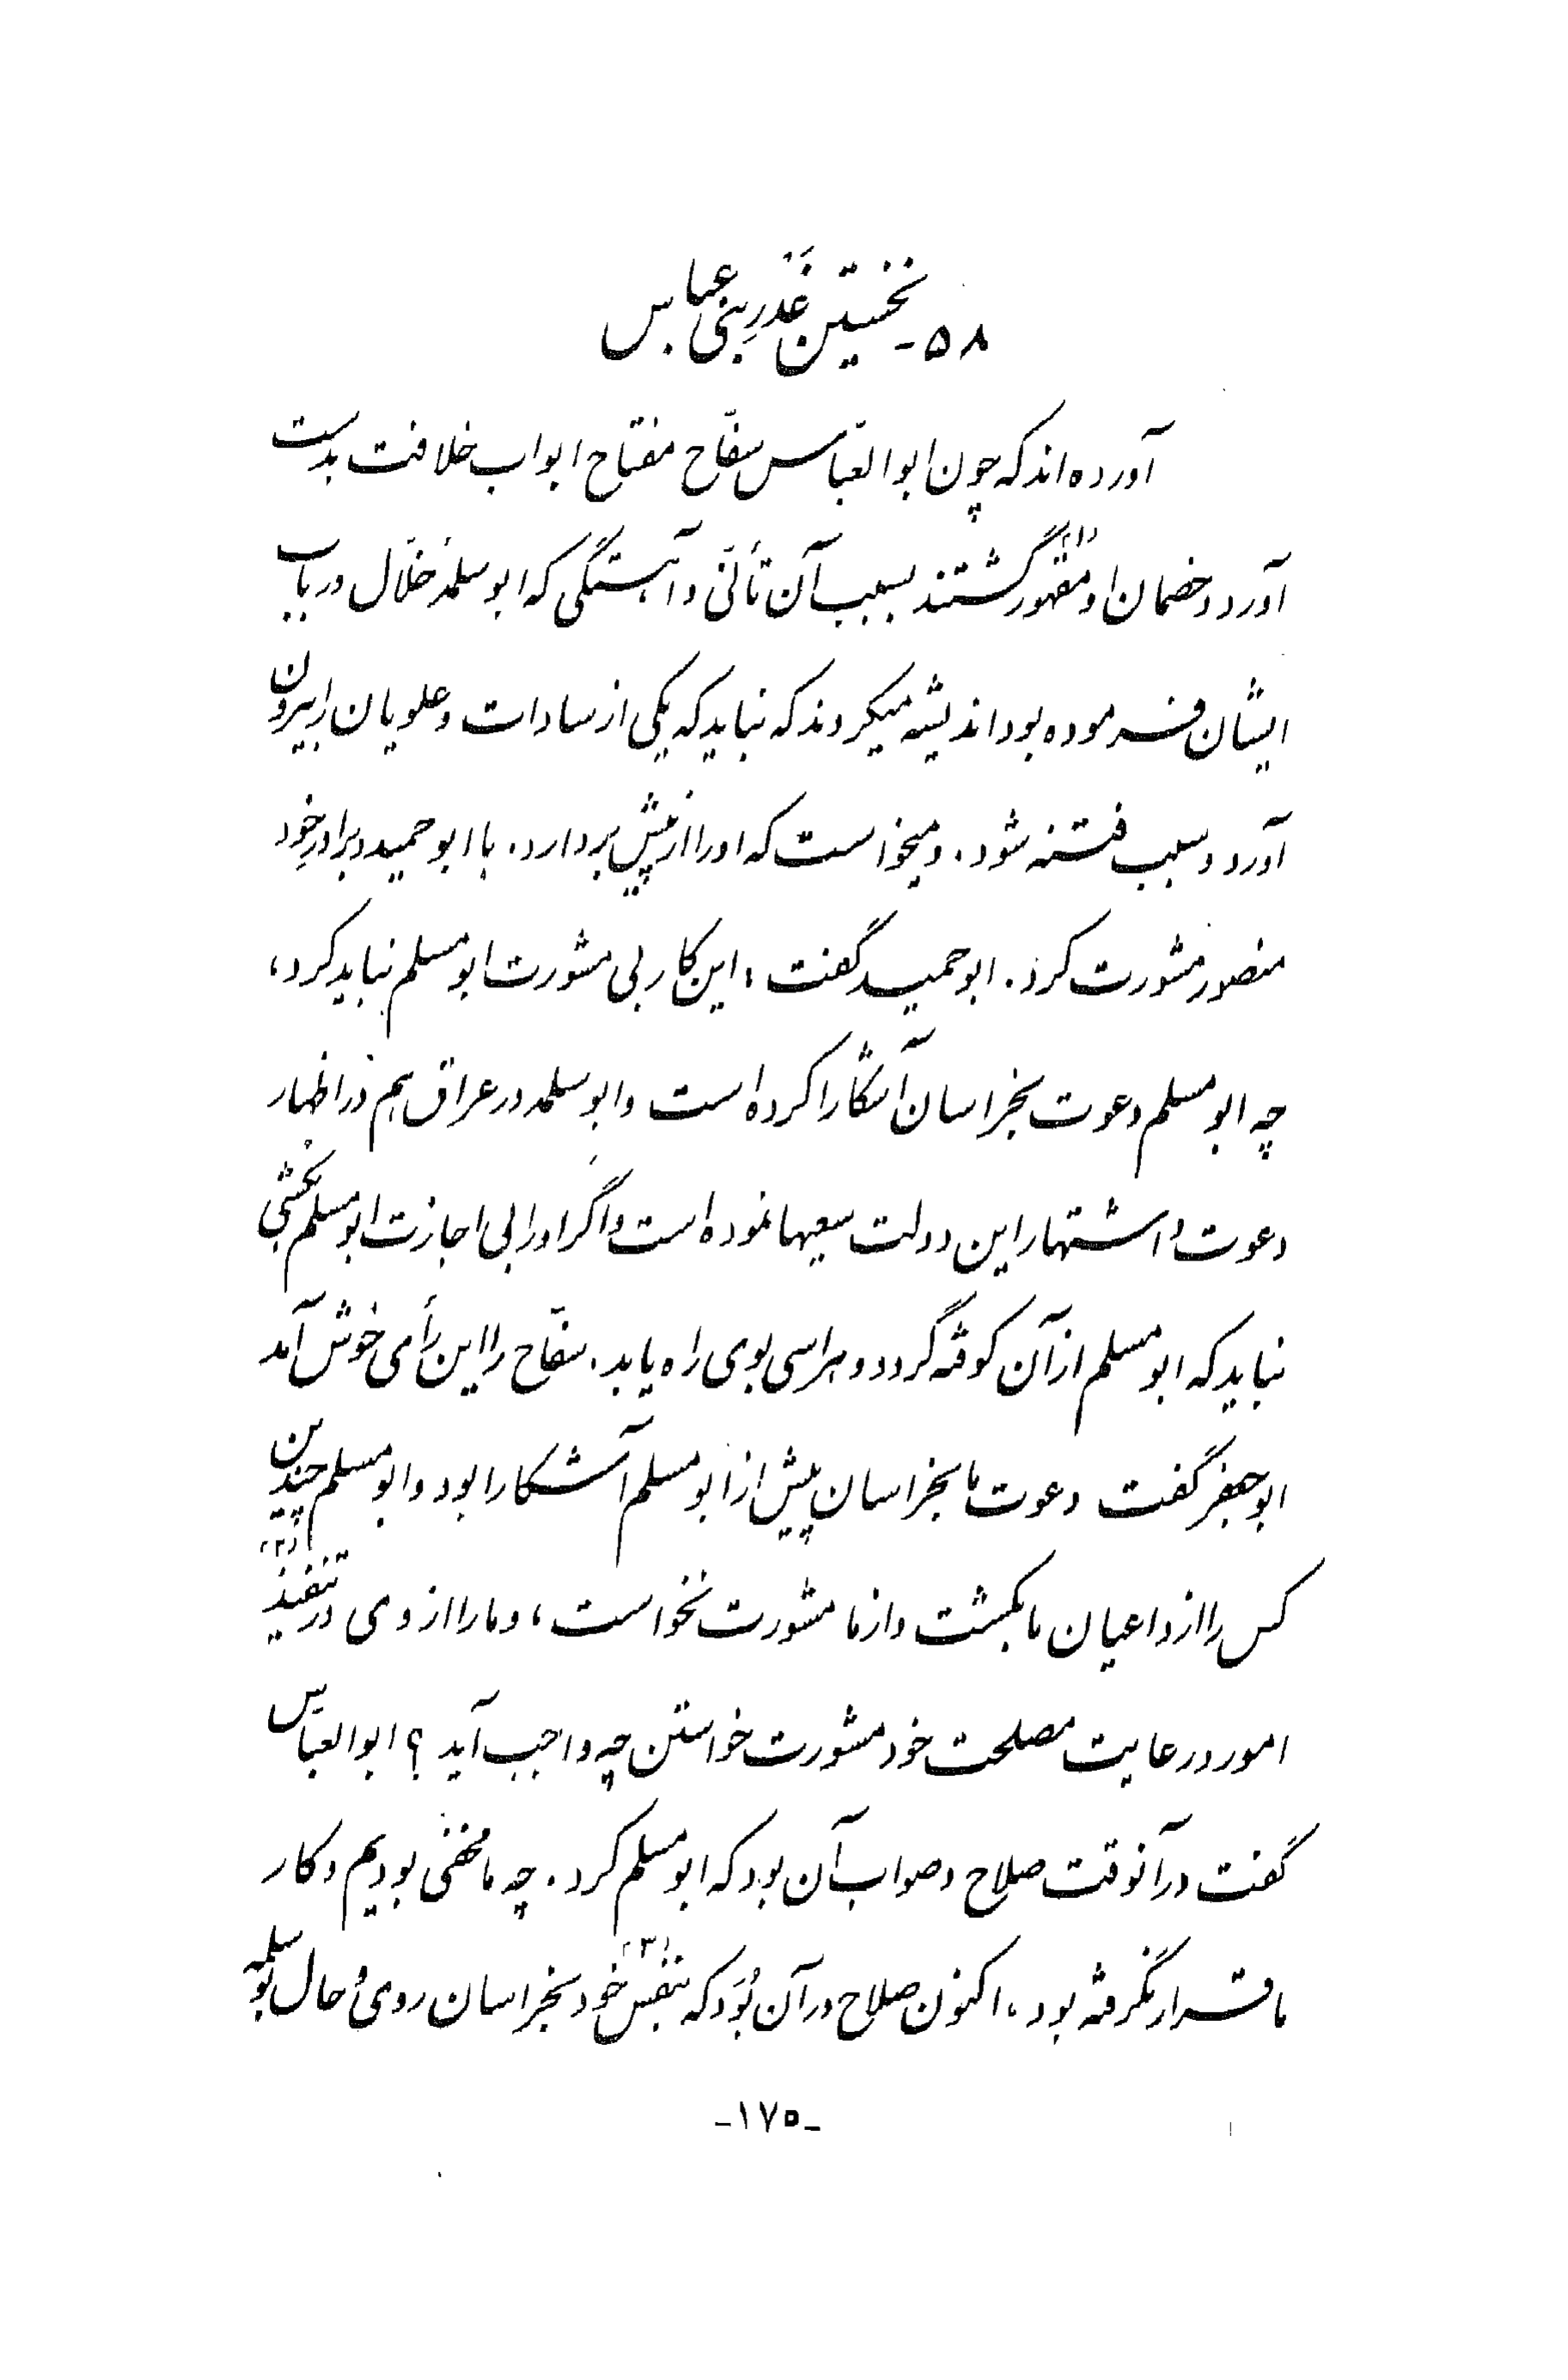 ۵۸- نخستین غَدرِ بنی عباس
آورده‌اند که چون ابوالعبّاس سفّاح مفتاح ابواب خلافت بدست
آورد و خصمان او مقهور (۱) گشتند بسبب آن تأنّی و آهستگی که ابوسلمهٔ خلّال در باب
ایشان فرموده بود اندیشه میکردند که نباید که یکی از سادات و علویان را بیرون
آورد و سبب فتنه شود. و میخواست که او را از پیش بردارد. با ابوحمید و برادر خود
منصور مشورت کرد. ابوحمید گفت: این کار بی مشورت ابومسلم نباید کرد،
چه ابومسلم دعوت بخراسان آشکارا کرده است و ابوسلمه در عراق هم در اظهار
دعوت و اشتهار این دولت سعیها نموده است و اگر او را بی اجازت ابومسلم بکشی
نباید که ابومسلم از آن کوفته گردد و هراسی بوی راه یابد. سفّاح را این رأی خوش آمد
ابوجعفر گفت دعوت ما بخراسان پیش از ابومسلم آشکارا بود و ابومسلم چندین
کس را از داعیان ما بکشت و از ما مشورت نخواست، و ما را از وی در تنفیذ (۲)
امور و رعایت مصلحت خود مشورت خواستن چه واجب آید؟ ابوالعبّاس
گفت در آنوقت صلاح و صواب آن بود که ابومسلم کرد. چه ما مخفی بودیم و کار
ما قرار نگرفته بود، اکنون صلاح در آن بُوَد که بنفس (۳) خود بخراسان روی و حال بوسلمه
-۱۷۵-